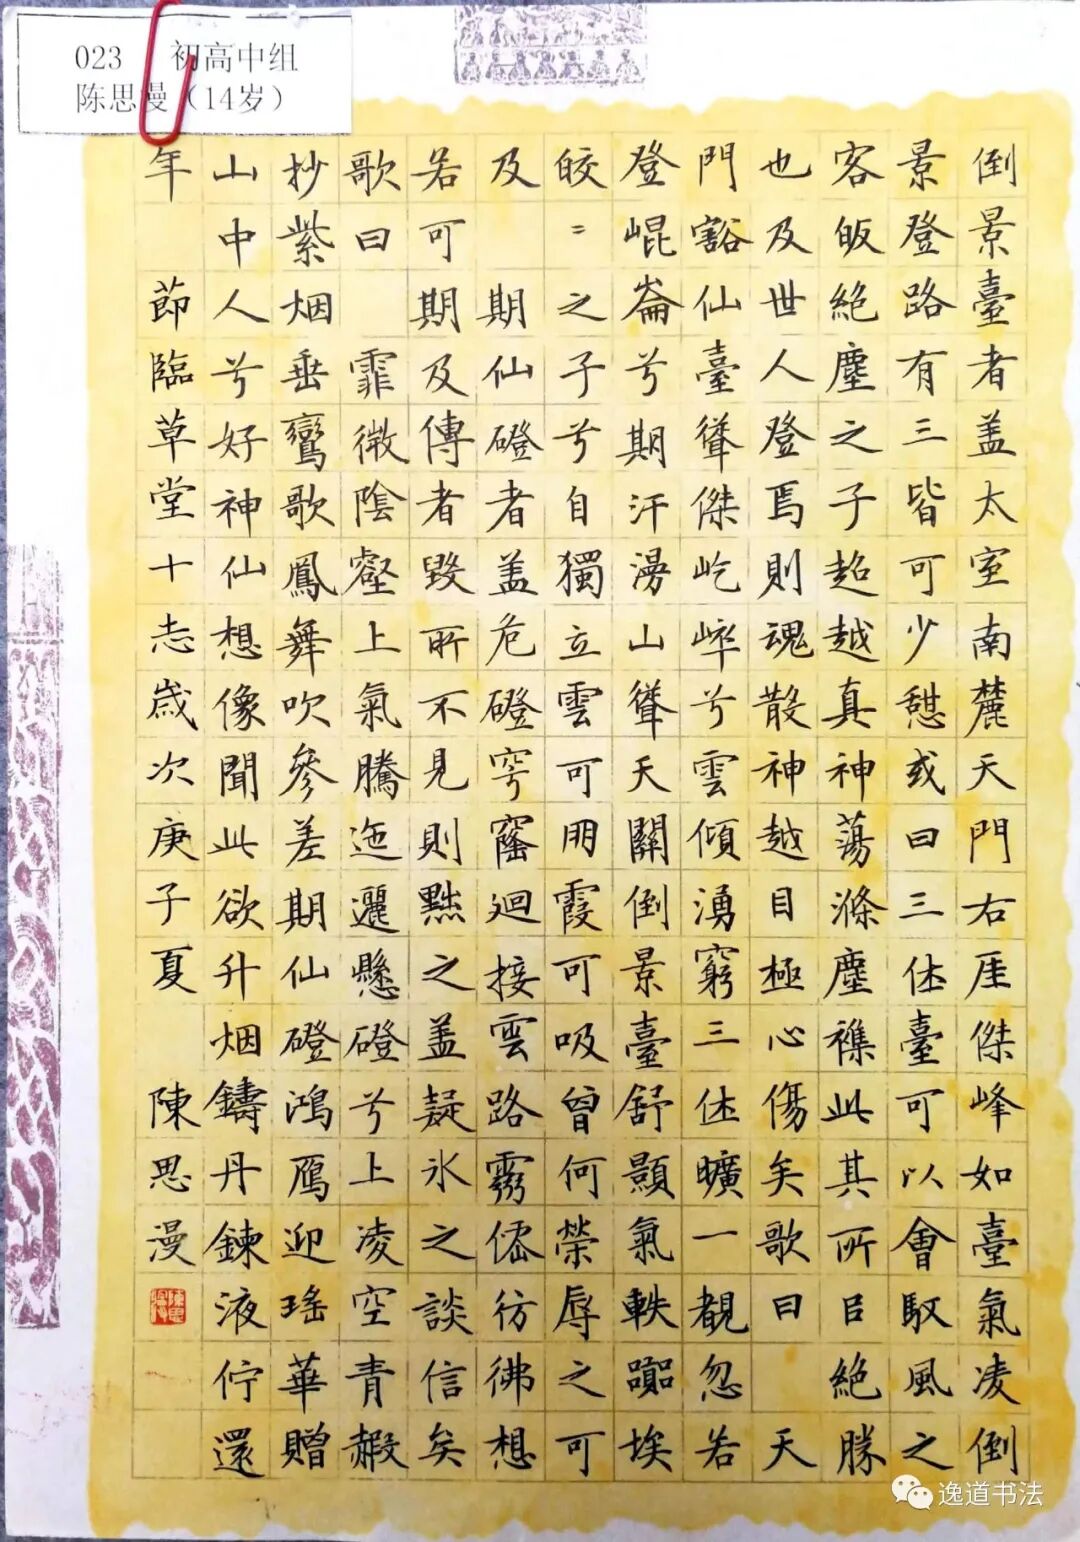 023 初高中组
陈思漫（14岁）
倒景臺者盖太室南麓天門右厓傑峰如臺氣凌倒
景登路有三皆可少憇或曰三休臺可以會馭風之
客皈絶塵之子超越真神蕩滌塵襟此其所㠯絶勝
也及世人登焉則魂散神越目極心傷矣歌曰 天
門豁仙臺聳傑屹崪兮雲傾湧窮三休曠一覩忽若
登崐崙兮期汗漫山聳天關倒景臺舒顥氣軼嚻埃
皎〻之子兮自獨立雲可朋霞可吸曾何榮辱之可
及 期仙磴者盖危磴穹窿迴接雲路靈僊彷彿想
若可期及傳者毀所不見則黜之盖疑氷之談信矣
歌曰 霏微陰壑上氣騰迤邐懸磴兮上凌空青霞
抄紫烟垂鸞歌鳳舞吹參差期仙磴鴻鴈迎瑤華贈
山中人兮好神仙想像聞此欲升烟鑄丹鍊液佇還
年 節臨草堂十志歲次庚子夏 陳思漫
逸道书法